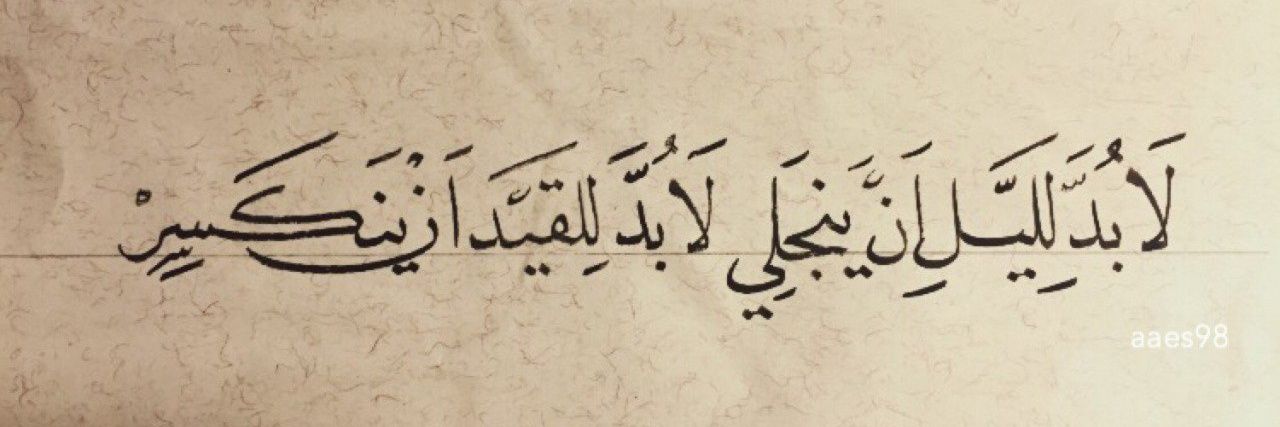 لَا بُدَّ لِلَّيلِ أَن يَنجَلِي لَا بُدَّ لِلقَيدِ أَن يَنكَسِرْ
aaes98